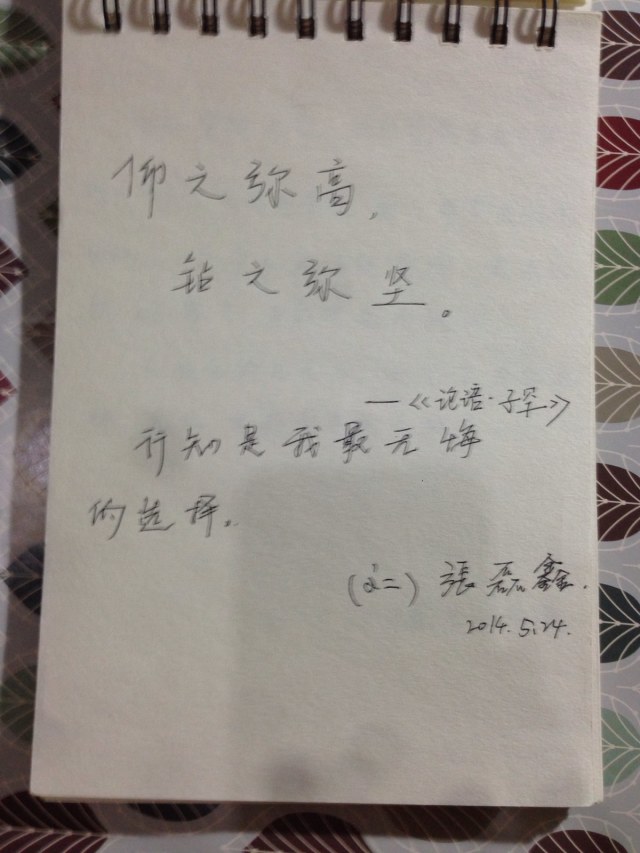 仰之弥高,
钻之弥坚。
—《论语·子罕》
行知是我最无悔
的选择。
张磊鑫.
2014.5.24.